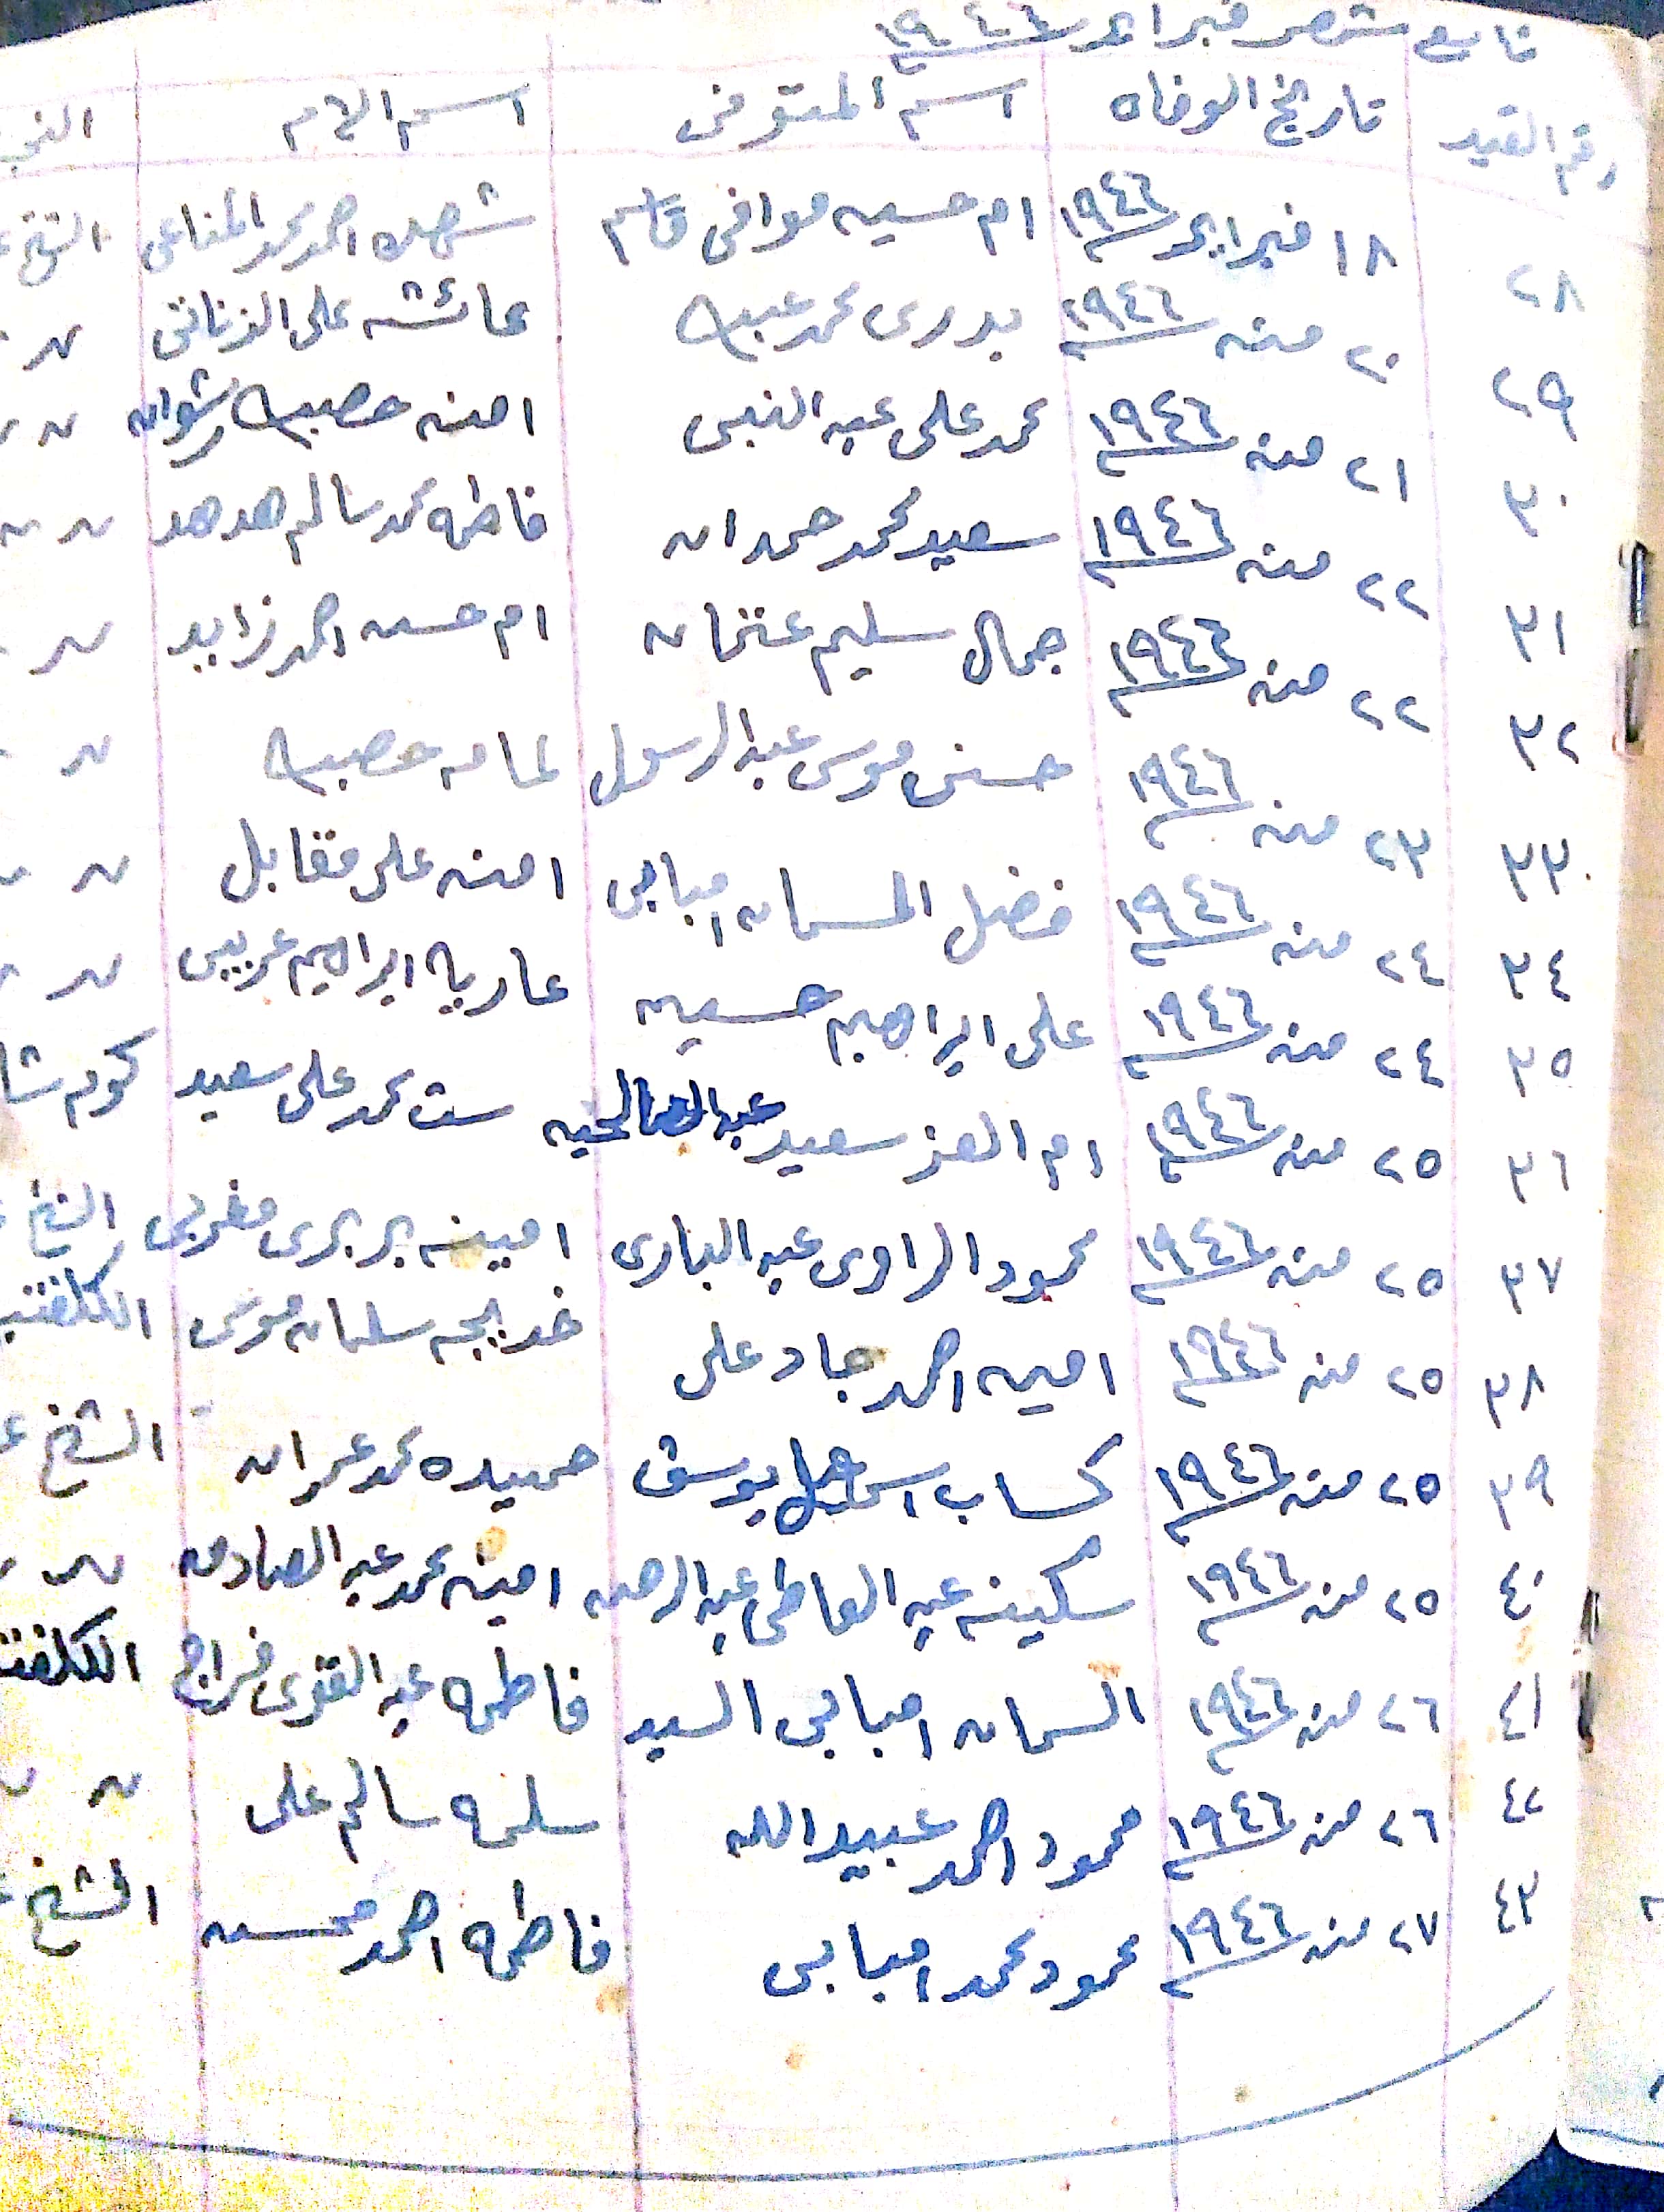 تابع شهر فبراير ١٩٤٦
رقم القيد تاريخ الوفاه اسم المتوفى اسم الام
٢٨ ١٨ فبراير ١٩٤٦ ام حسين موافى قاسم شهده احمد محمد الشيخ
٢٩ ٢٠ منه ١٩٤٦ بدرى محمد عائشه على الزناتى " "
٣٠ ٢١ منه ١٩٤٦ محمد على عبد النبى امنه رشوان " "
٣١ ٢٢ منه ١٩٤٦ سعيد محمد حمدان فاطمه محمد سالم هدهد " "
٣٢ ٢٢ منه ١٩٤٦ جمال سليم عثمان ام حسن احمد زايد "
٣٣ ٢٣ منه ١٩٤٦ حسنى موسى عبد الرسول "
٣٤ ٢٤ منه ١٩٤٦ فضل السمان امبابى امنه على مقابل " "
٣٥ ٢٤ منه ١٩٤٦ على ابراهيم حسين ابراهيم "
٣٦ ٢٥ منه ١٩٤٦ ام العز سعيد ست محمد على سعيد كوم
٣٧ ٢٥ منه ١٩٤٦ محمود الراوى عبد البارى امينه بربرى مغربى الشيخ
٣٨ ٢٥ منه ١٩٤٦ امين احمد جاد على خديجه سلمان موسى
٣٩ ٢٥ منه ١٩٤٦ كساب اسماعيل يوسف حميده محمد عمران الشيخ
٤٠ ٢٥ منه ١٩٤٦ سكينه عبد العاطى عبد الرحمن امينه محمد عبد الصادق "
٤١ ٢٦ منه ١٩٤٦ السمان امبابى السيد فاطمه عبد القوى فراج
٤٢ ٢٦ منه ١٩٤٦ محمود احمد عبيد الله سلمه سالم على " "
٤٣ ٢٧ منه ١٩٤٦ محمود محمد امبابى فاطمه احمد محسن الشيخ